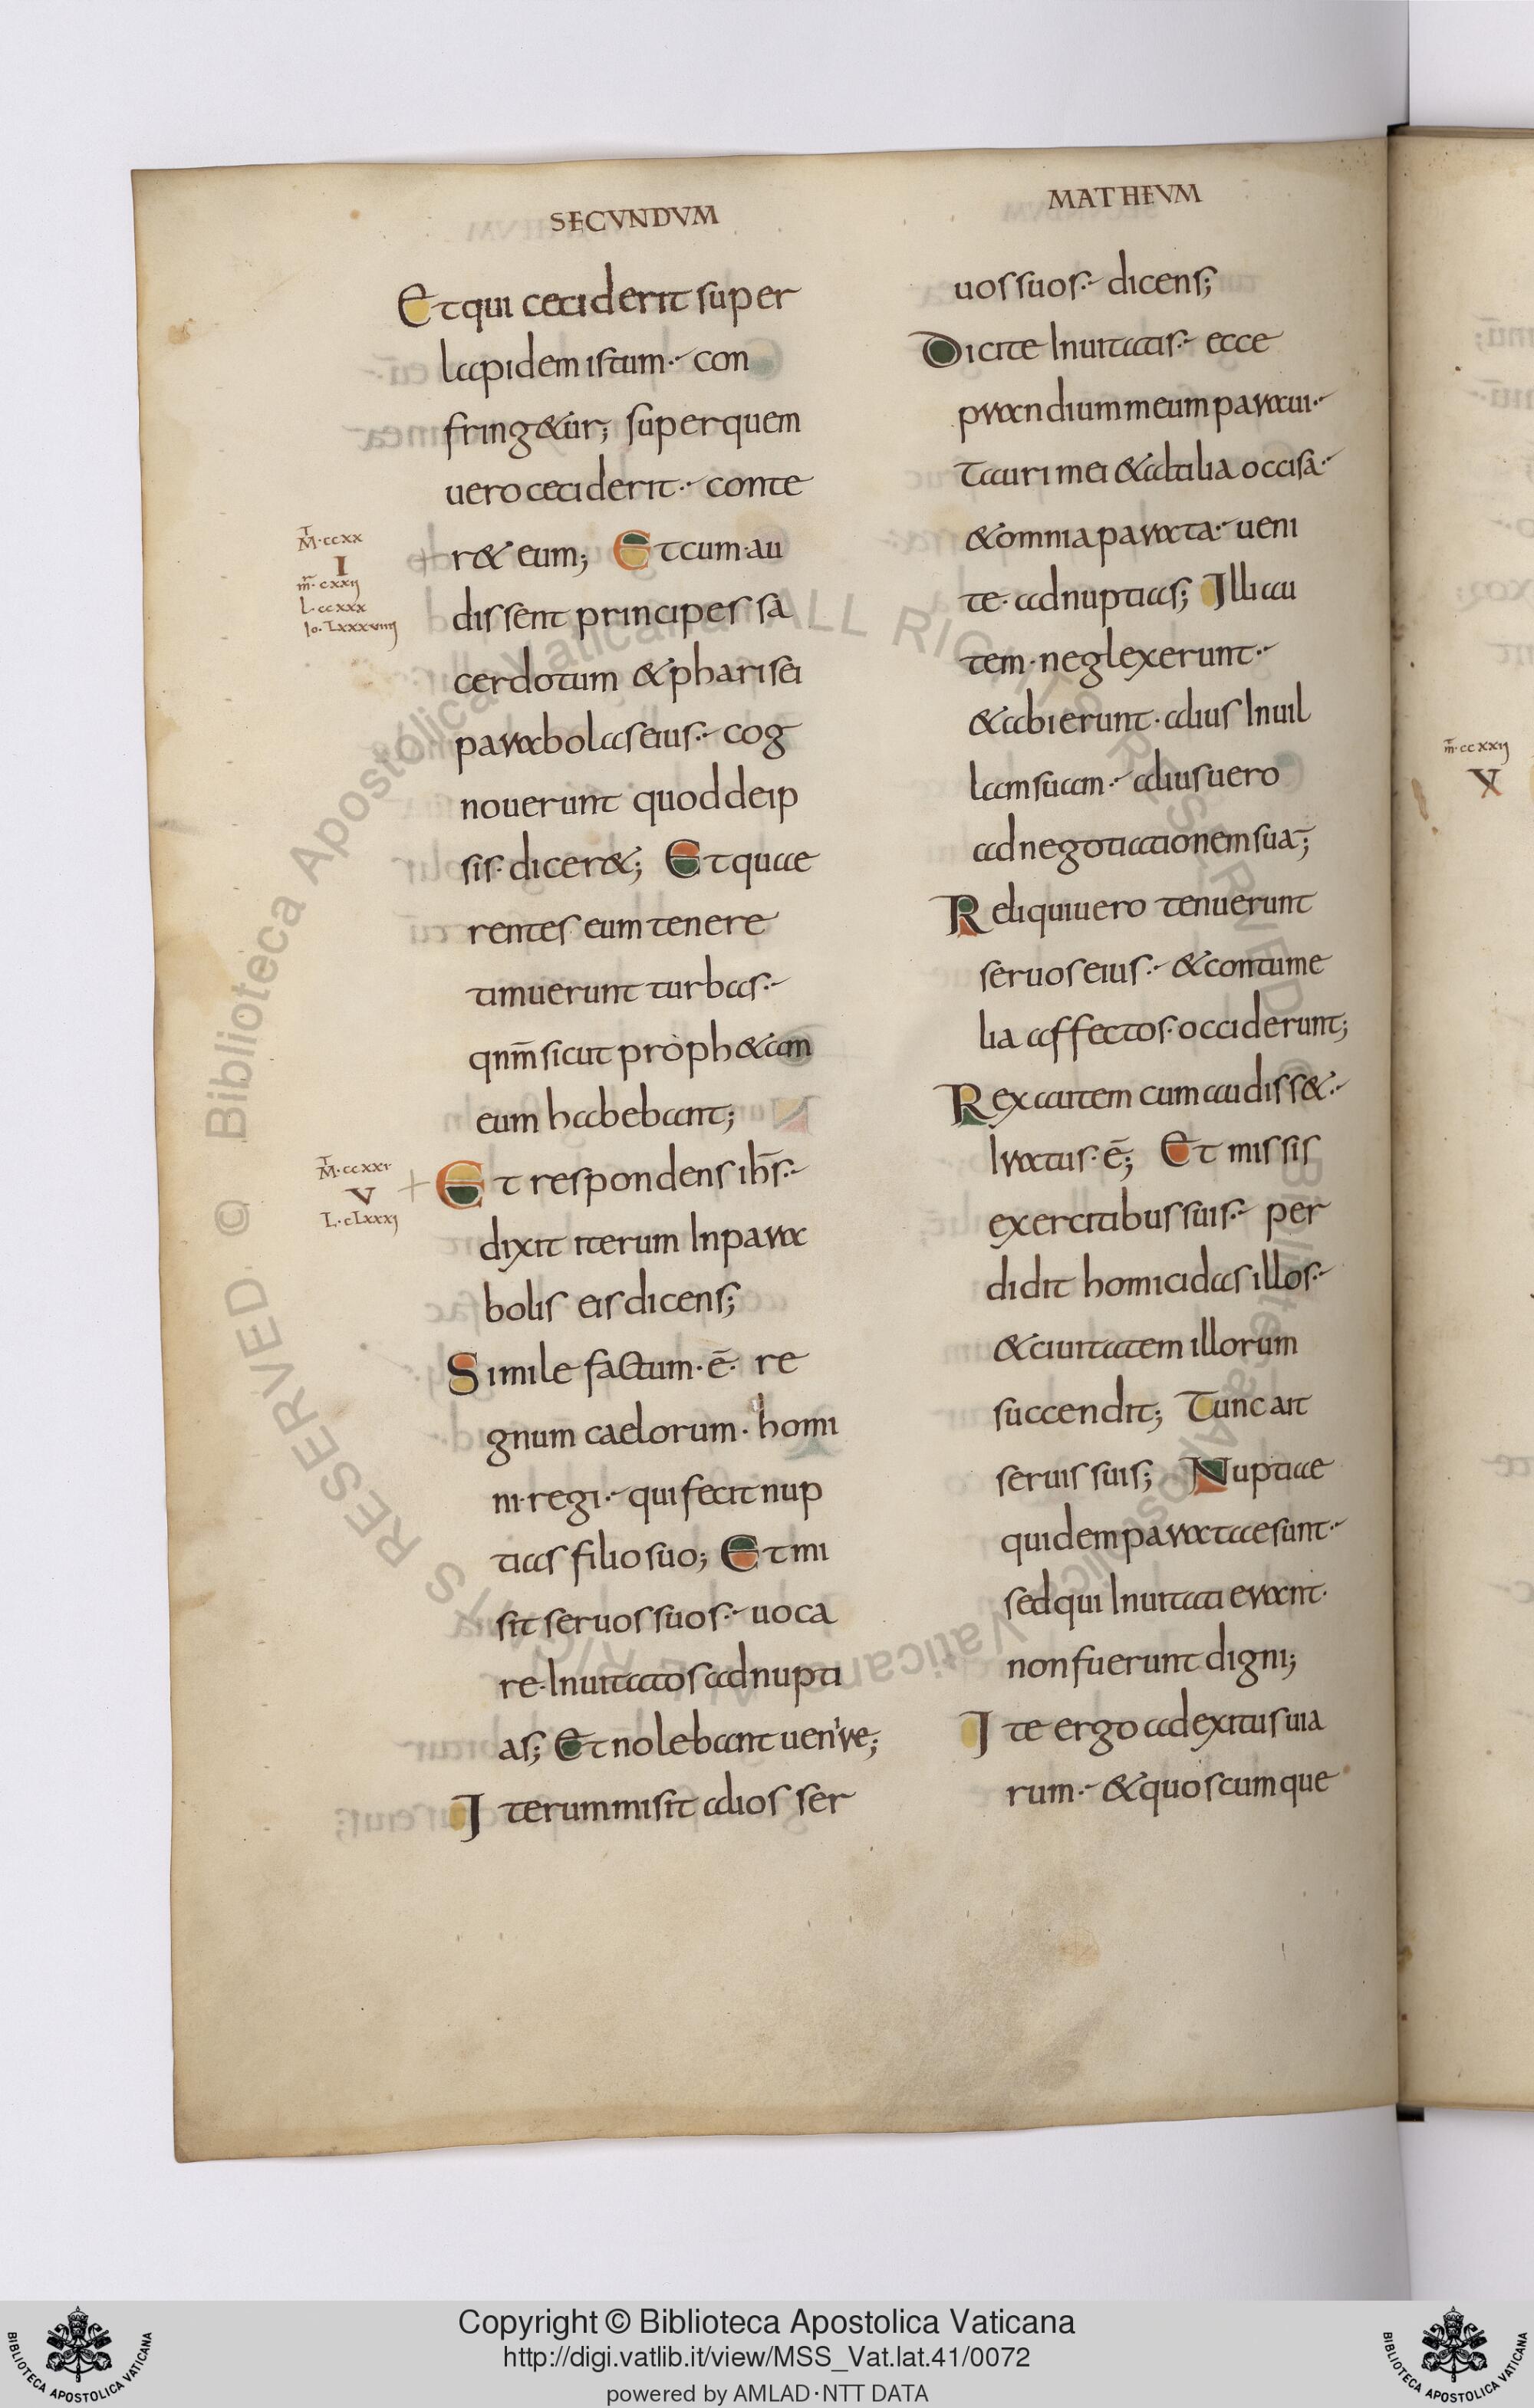 SECVNDVM
Et qui ceciderit super
lapidem istum·- con
fring&ur; super quem
uero ceciderit·- conte
M̄·ccxx
I
m̄·cxxij
L·ccxxx
Io·Lxxxviiij
r& eum; Et cum au
dissent principes sa
cerdotum & pharisei
parabolas eius·- cog
nouerunt quod de ip
sis· dicer&; Et quae
rentes eum tenere
timuerunt turbas·-
qnm̄ sicut proph&am
eum habebant;
M̄·ccxxi·
V
L·cLxxxj
Et respondens ihs̄·-
dixit iterum In para
bolis eis dicens;
Simile factum·ē· re
gnum caelorum· homi
ni· regi·- qui fecit nup
tias filio suo; Et mi
sit seruos suos·- uoca
re· Inuitatos ad nupti
as; Et nolebant uenire;
Iterum misit alios ser
MATHEVM
uos suos·- dicens;
Dicite Inuitatis·- ecce
prandium meum paraui·-
Tauri mei & altilia occisa·-
& omnia parata·- ueni
te· ad nuptias; Illi au
tem· neglexerunt·-
& abierunt· alius In uil
lam suam·- alius uero
ad negotiationem suā;
Reliqui uero tenuerunt
seruos eius·- & contume
lia affectos· occiderunt;
Rex autem cum audiss&·-
Iratus·ē; Et missis
exercitibus suis·- per
didit homicidas illos·-
& ciuitatem illorum
succendit; Tunc ait
seruis suis; Nuptiae
quidem paratae sunt·-
sed qui Inuitati erant·
non fuerunt digni;
Ite ergo ad exitus uia
rum·- & quoscumque
m̄·ccxxij
X
Copyright © Biblioteca Apostolica Vaticana
http://digi.vatlib.it/view/MSS_Vat.lat.41/0072
powered by AMLAD·NTT DATA
BIBLIOTECA APOSTOLICA VATICANA
BIBLIOTECA APOSTOLICA VATICANA